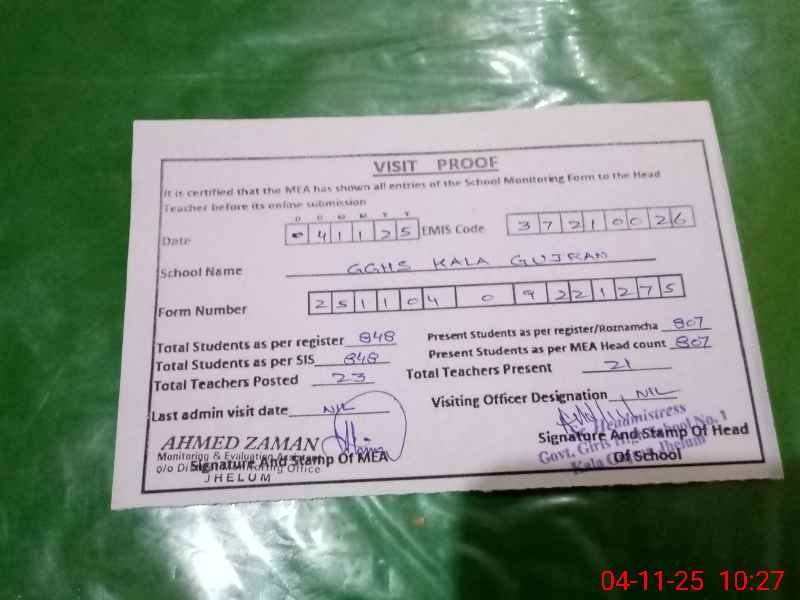 VISIT PROOF
It is certified that the MEA has shown all entries of the School Monitoring Form to the Head
Teacher before its online submission
D D M M Y Y
Date 041125 EMIS Code 37210026
School Name GGHS KALA GUJRAN
Form Number 251104 0 9221275
Total Students as per register 848 Present Students as per register/Roznamcha 807
Total Students as per SIS 848 Present Students as per MEA Head count 807
Total Teachers Posted 23 Total Teachers Present 21
Last admin visit date NIL Visiting Officer Designation NIL
AHMED ZAMAN
Monitoring & Evaluation
o/o Office
JHELUM
Signature And Stamp Of MEA
Headmistress
Govt. Girls High School No. 1
Kala Jhelum
Signature And Stamp Of Head
Of School
04-11-25 10:27